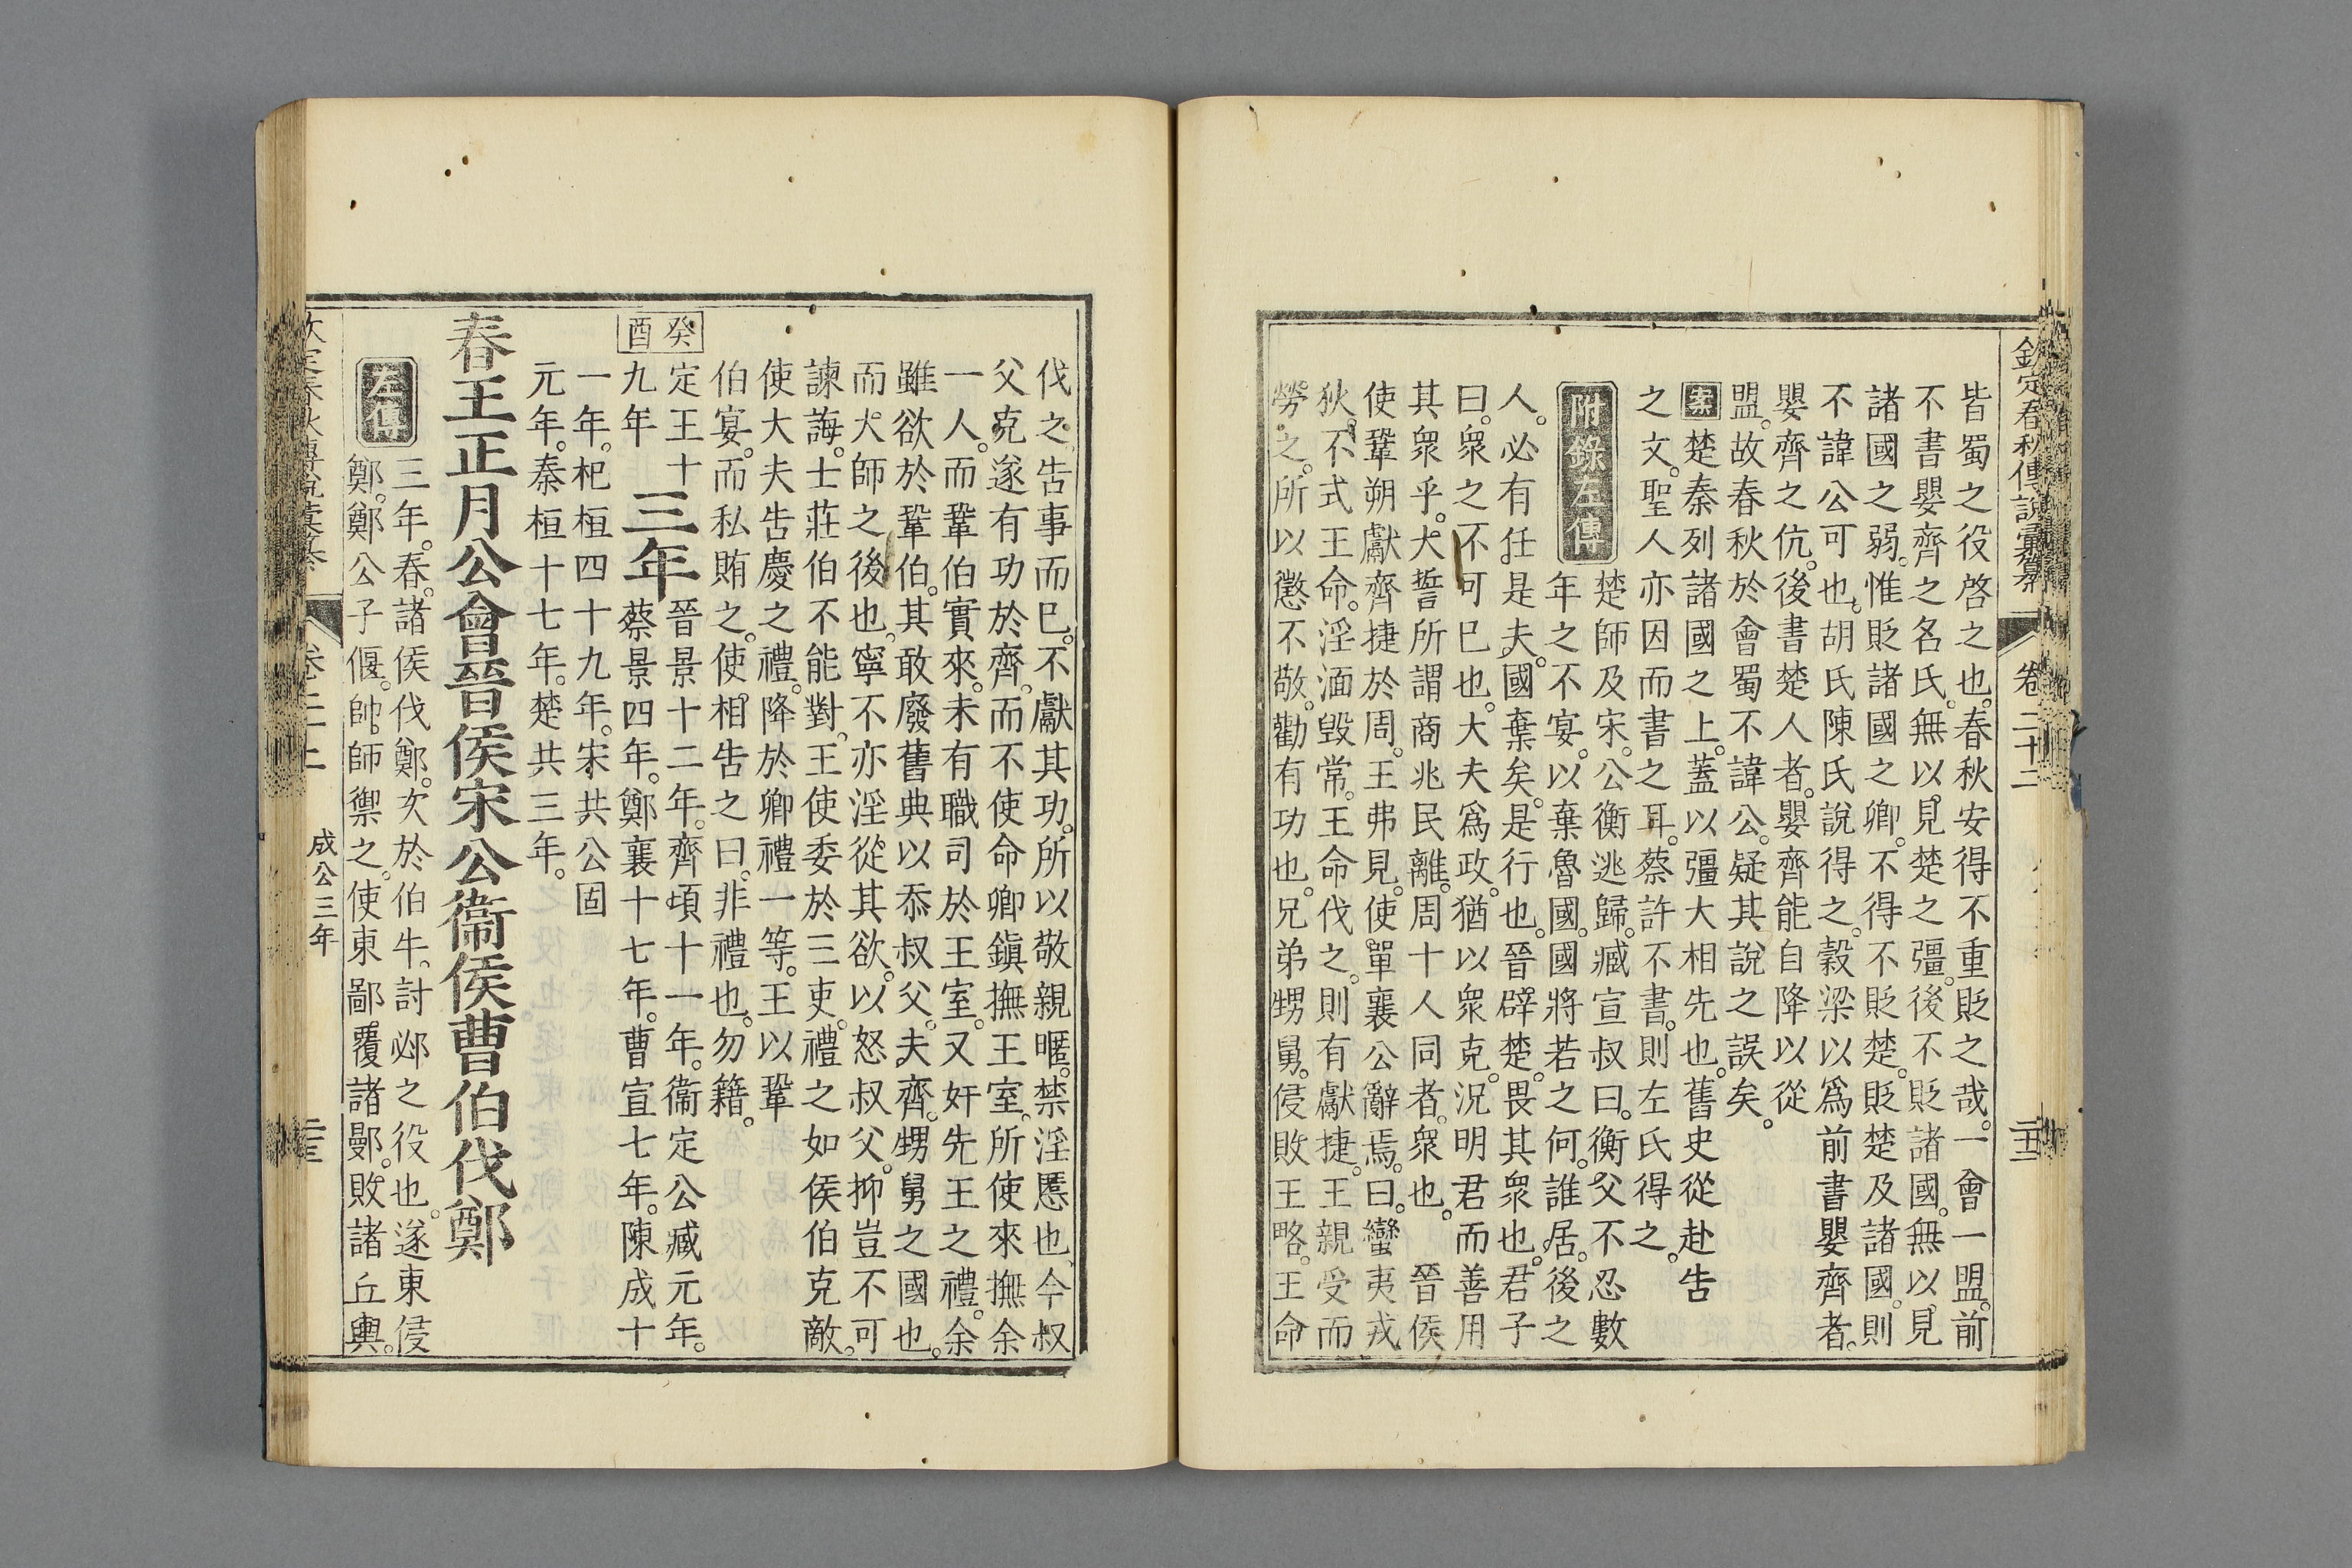 欽定春秋傳說彙纂 卷二十二
皆蜀之役啓之也。春秋安得不重貶之哉。一會一盟。前
不書嬰齊之名氏。無以見楚之彊。後不貶諸國。無以見
諸國之弱。惟貶諸國之卿。不得不貶楚。貶楚及諸國。則
不諱公可也。胡氏陳氏說得之。榖梁以爲前書嬰齊者。
嬰齊之伉。後書楚人者。嬰齊能自降以從
盟。故春秋於會蜀不諱公。疑其說之誤矣。
案楚秦列諸國之上。蓋以彊大相先也。舊史從赴告
之文。聖人亦因而書之耳。蔡許不書。則左氏得之。
附錄左傳
楚師及宋。公衡逃歸。臧宣叔曰。衡父不忍數
年之不宴。以棄魯國。國將若之何。誰居。後之
人。必有任是夫。國棄矣。是行也。晉辟楚。畏其衆也。君子
曰。衆之不可已也。大夫爲政。猶以衆克。況明君而善用
其衆乎。大誓所謂商兆民離。周十人同者。衆也。 晉侯
使鞏朔獻齊捷於周。王弗見。使單襄公辭焉。曰。蠻夷戎
狄。不式王命。淫湎毀常。王命伐之。則有獻捷。王親受而
勞之。所以懲不敬。勸有功也。兄弟甥舅。侵敗王略。王命
伐之告事而已。不獻其功。所以敬親暱。禁淫慝也。今叔
父克遂有功於齊。而不使命卿鎭撫王室。所使來撫余
一人。而鞏伯實來。未有職司於王室。又奸先王之禮。余
雖欲於鞏伯。其敢廢舊典以忝叔父。夫齊。甥舅之國也。
而大師之後也。寧不亦淫從其欲。以怒叔父。抑豈不可
諫誨。士莊伯不能對。王使委於三吏。禮之如侯伯克敵。
使大夫告慶之禮。降於卿禮一等。王以鞏
伯宴。而私賄之。使相告之曰。非禮也。勿籍。
癸酉
定王十九年
三年
晉景十二年。齊頃十一年。衞定公臧元年。
蔡景四年。鄭襄十七年。曹宣七年。陳成十
一年。杞桓四十九年。宋共公固
元年。秦桓十七年。楚共三年。
春王正月公會晉侯宋公衞侯曹伯伐鄭
左傳
三年。春。諸侯伐鄭。次於伯牛。討邲之役也。遂東侵
鄭。鄭公子偃。帥師禦之。使東鄙覆諸鄤。敗諸丘輿。
成公三年